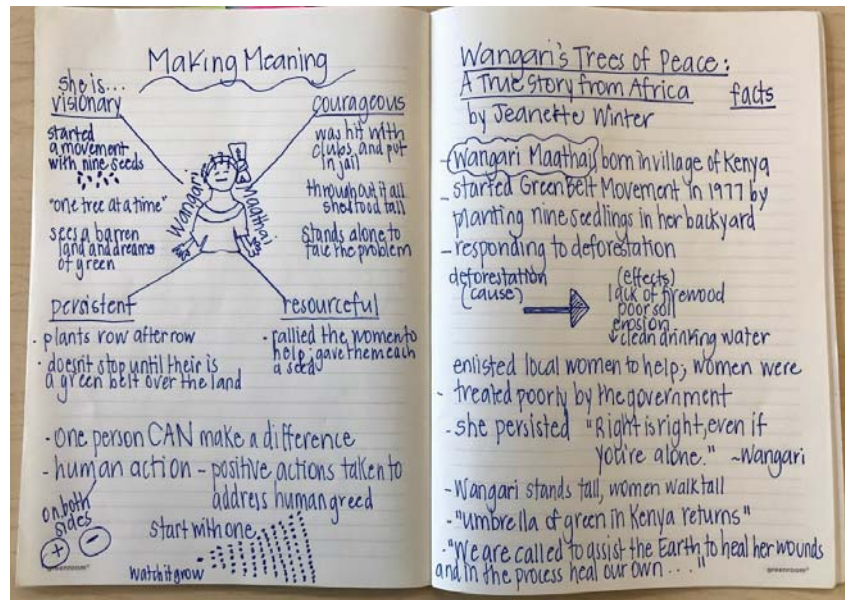 Making Meaning
she is...
visionary
started
a movement
with nine seeds
"one tree at a time"
sees a barren
land and dreams
of green
courageous
was hit with
clubs and put
in jail
throughout it all
she stood tall
stands alone to
face the problem
Wangari
Maathai
persistent
· plants row after row
· doesn't stop until their is
a green belt over the land
resourceful
· rallied the women to
help; gave them each
a seed
· one person CAN make a difference
- human action - positive actions taken to
address human greed
on both
sides
+ -
start with one
watch it grow
greenroom
Wangari's Trees of Peace:
A True Story from Africa
facts
by Jeanette Winter
- Wangari Maathai born in village of Kenya
- started Green Belt Movement in 1977 by
planting nine seedlings in her backyard
- responding to deforestation
deforestation
(cause)
(effects)
lack of firewood
poor soil
erosion
↓ clean drinking water
enlisted local women to help; women were
- treated poorly by the government
- she persisted "Right is right, even if
you're alone." ~Wangari
- Wangari stands tall, women walk tall
- "umbrella of green in Kenya returns"
- "We are called to assist the Earth to heal her wounds
and in the process heal our own . . . "
greenroom